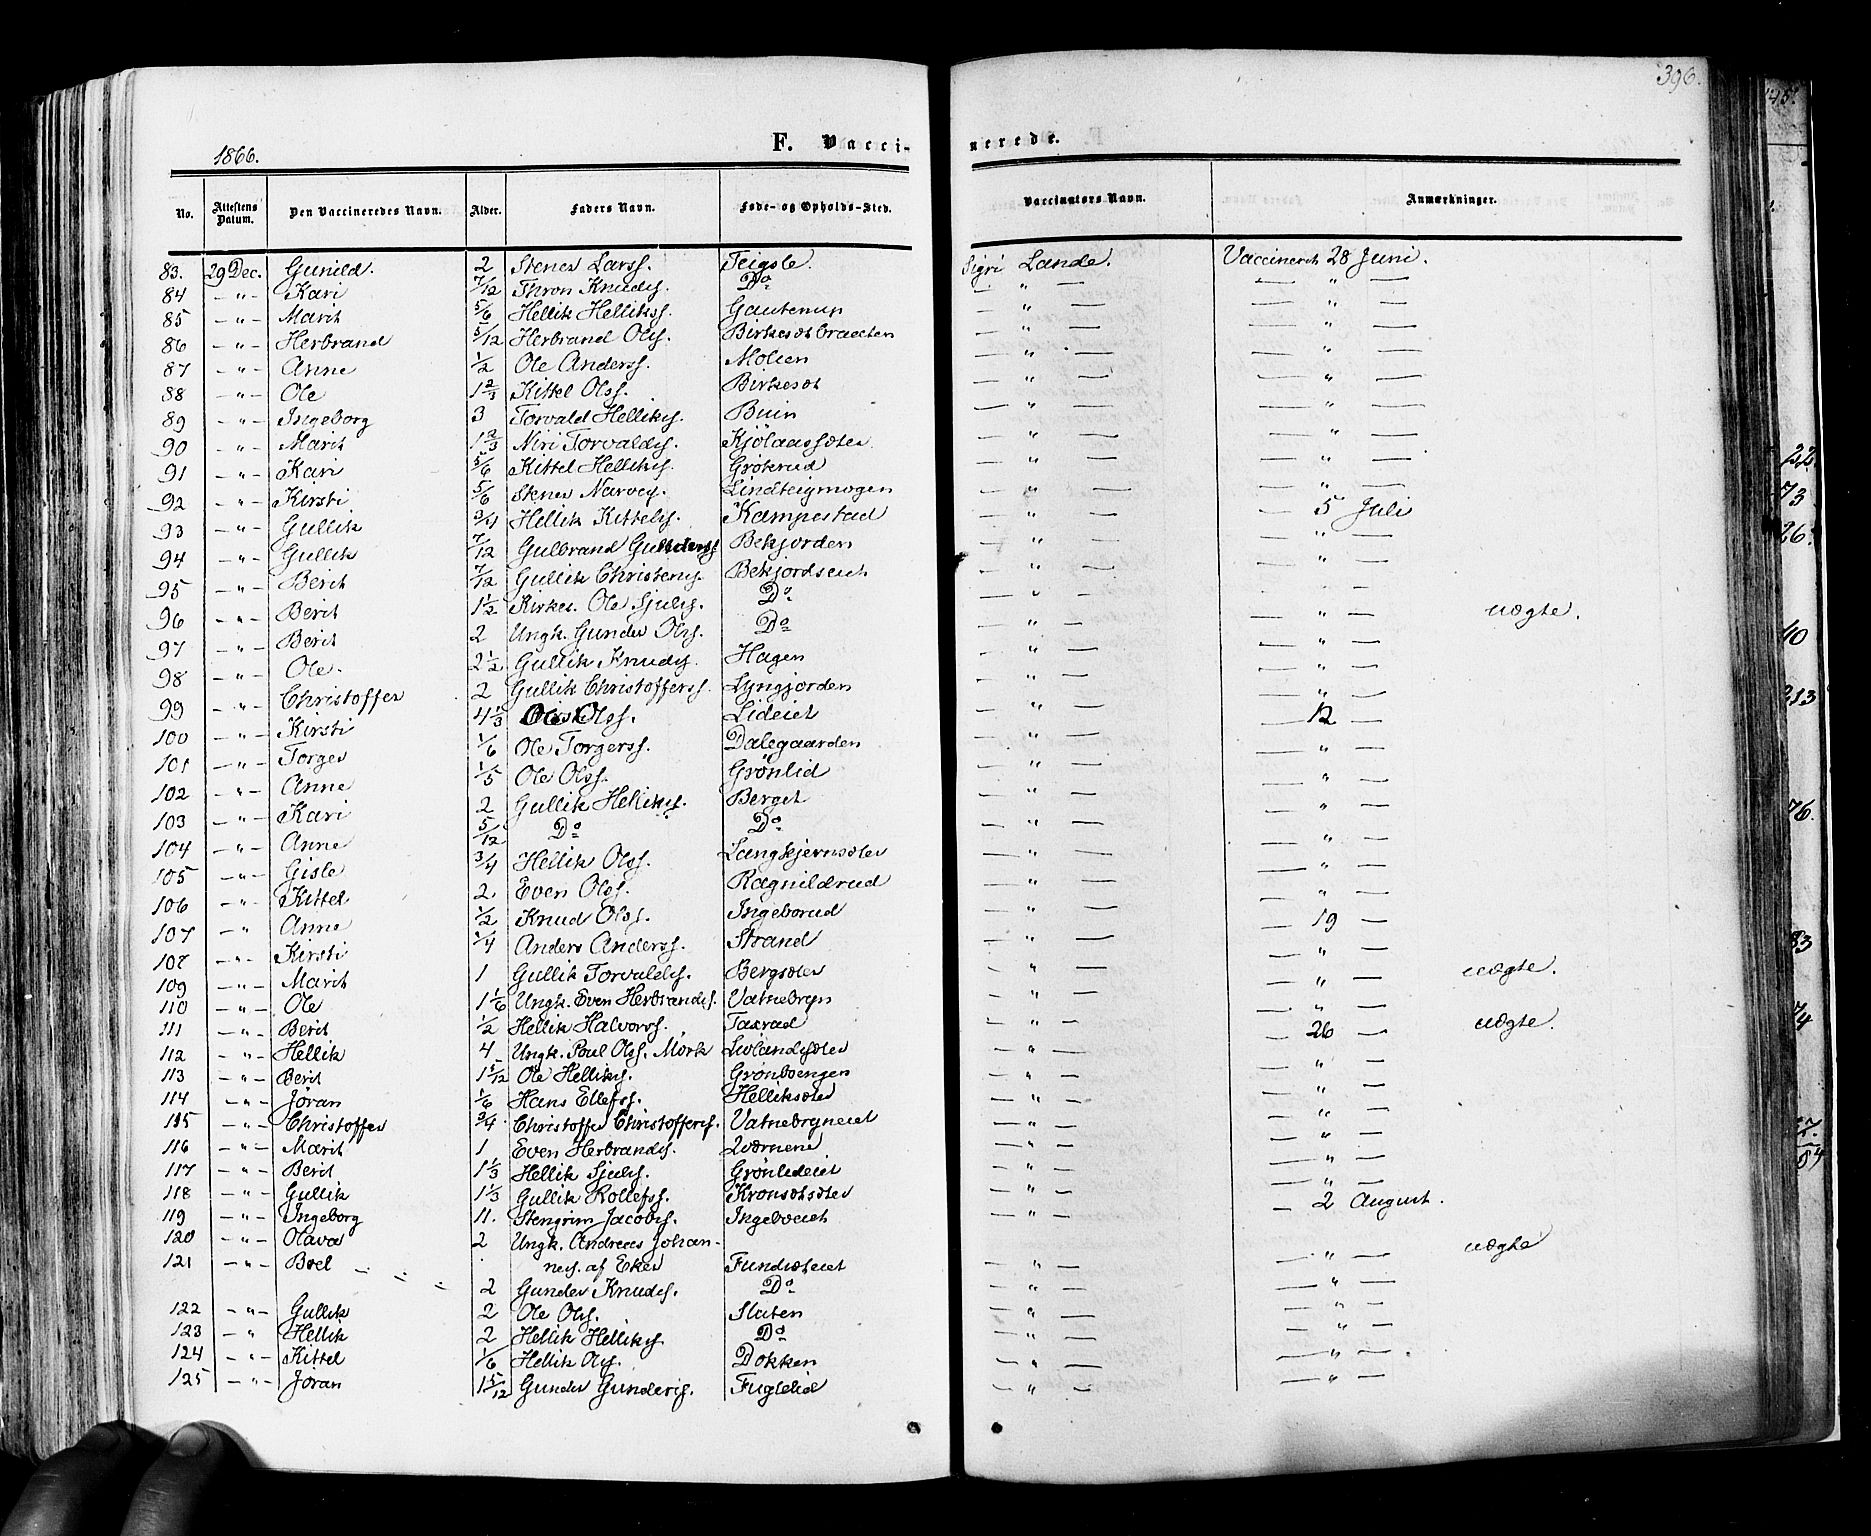 396.
1866.
F. Vaccinerede.
No. Attestens Datum. Den Vaccineredes Navn. Alder. Faders Navn. Føde- og Opholds-Sted. Vaccinators Navn. Anmærkninger.
83. 29 Dec. Gunild. 2 Stener Larss. Teigsle. Sigri Lande. Vaccineret 28 Juni.
84 — " — Kari 7/12 Thron Knuds. Do — " — — " —
85 — " — Marit 5/6 Hellik Helliks. Gautenup — " — — " —
86 — " — Herbrand 5/12 Herbrand Ols. Birkesøtbraaten — " — — " —
87 — " — Anne 1/2 Ole Anderss. MoLien — " — — " —
88 — " — Ole 1 2/3 Kittel Olss. Birkesøt — " — — " —
89 — " — Ingeborg 3 Torvald Helliks. Buin — " — — " —
90 — " — Marit 1 2/3 Niri Torvalds. Kjölaassæter — " — — " —
91 — " — Kari 5/6 Kittel Helliks. Grøterud — " — — " —
92 — " — Kirsti 5/6 Stener Narves. Lindteigmogen — " — — " —
93 — " — Gullik 3/4 Hellik Kittels. Kampestad — " — — 5 Juli
94 — " — Gullik 7/12 Gulbrand Bekjorden — " — — " —
95 — " — Berit 7/12 Gullik Christens. Bekjordseiet — " — — " —
96 — " — Berit 1 1/2 Kirkes. Ole Sjuls. Do — " — — " — uægte.
97 — " — Berit 2 Ungk. Gunder Olss. Do — " — — " —
98 — " — Ole. 2 1/2 Gullik Knuds. Hagen — " — — " —
99 — " — Christoffer 2 Gullik Christofferss. Lyngjorden — " — — " —
100 — " — Kirsti 4 1/3 Ole Olss. Lideiet — " — — 12 —
101 — " — Torger 1/6 Ole Torgerss. Dalegaarden — " — — " —
102 — " — Anne 1/5 Ole Olss. Grönlid — " — — " —
103 — " — Kari 2 Gullik Helliks. Berget — " — — " —
104 — " — Anne 5/12 Do Do — " — — " —
105 — " — Gisle 3/4 Hellik Olss. Langkjernsæter — " — — " —
106 — " — Kittel 2 Even Olss. Ragnildrud — " — — " —
107 — " Anne 1/2 Knud Olss. Ingeborud — " — — 19 —
108 — " — Kirsti 3/4 Anders Anderss. Strand — " — — " —
109 — " — Marit 1 Gullik Torvalds. Bergsæter — " — — " — uægte.
110 — " — Ole 1 1/6 Ungk. Even Herbrands. Vatnebryn — " — — " —
111 — " — Berit 1/2 Hellik Halvorss. Taxrud — " — — 26 — uægte.
112 — " — Hellik 4 Ungk. Poul Olss. Mork — " — — " —
113 — " — Berit 1 5/12 Ole Helliks. — " — — " —
114 — " — Jöran 1/6 Hans Ellefss. Helliksæter — " — — " —
115 — " — Christoffer 3/4 Christoffer Christoffers. Vatnebryneiet — " — — " —
116 — " — Marit 1 Even Herbrands. Qværnene — " — — " —
117 — " — Berit 1 1/3 Hellik Sjuls. Grönlideiet — " — — " —
118 — " — Gullik 1 1/3 Gullik Rollefss. Kronsætsæter — " — — 2 August.
119 — " — Ingeborg 11. Stengrim Jacobs. Ingeboeiet — " —
120 — " — Olava 2 Ungk. Andreas Johan-
121 — " — Boel nes. af Eker Fundsæteiet — " — — " — uægte
2 Gunder Knuds. Do — " — — " —
122 — " — Gullik 2 Ole Olss. Slaten — " — — " —
123 — " Hellik 2 Hellik Helliks. Do — " — — " —
124 — " — Kittel 1/6 Hellik Ols. Dokken — " — — " —
125 — " — Jöran 1 5/12 Gunder Gunders. Fuglelid — " — — " —